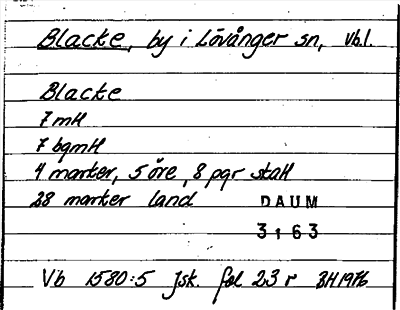 Blacke, by i Lövånger sn, Vb.l.
Blacke
7 mH
7 bgmH
4 marker, 5 öre, 8 pgr skatt
28 marker land
DAUM
3163
Vb 1580:5 Jsk. fol 23 r BH 1976